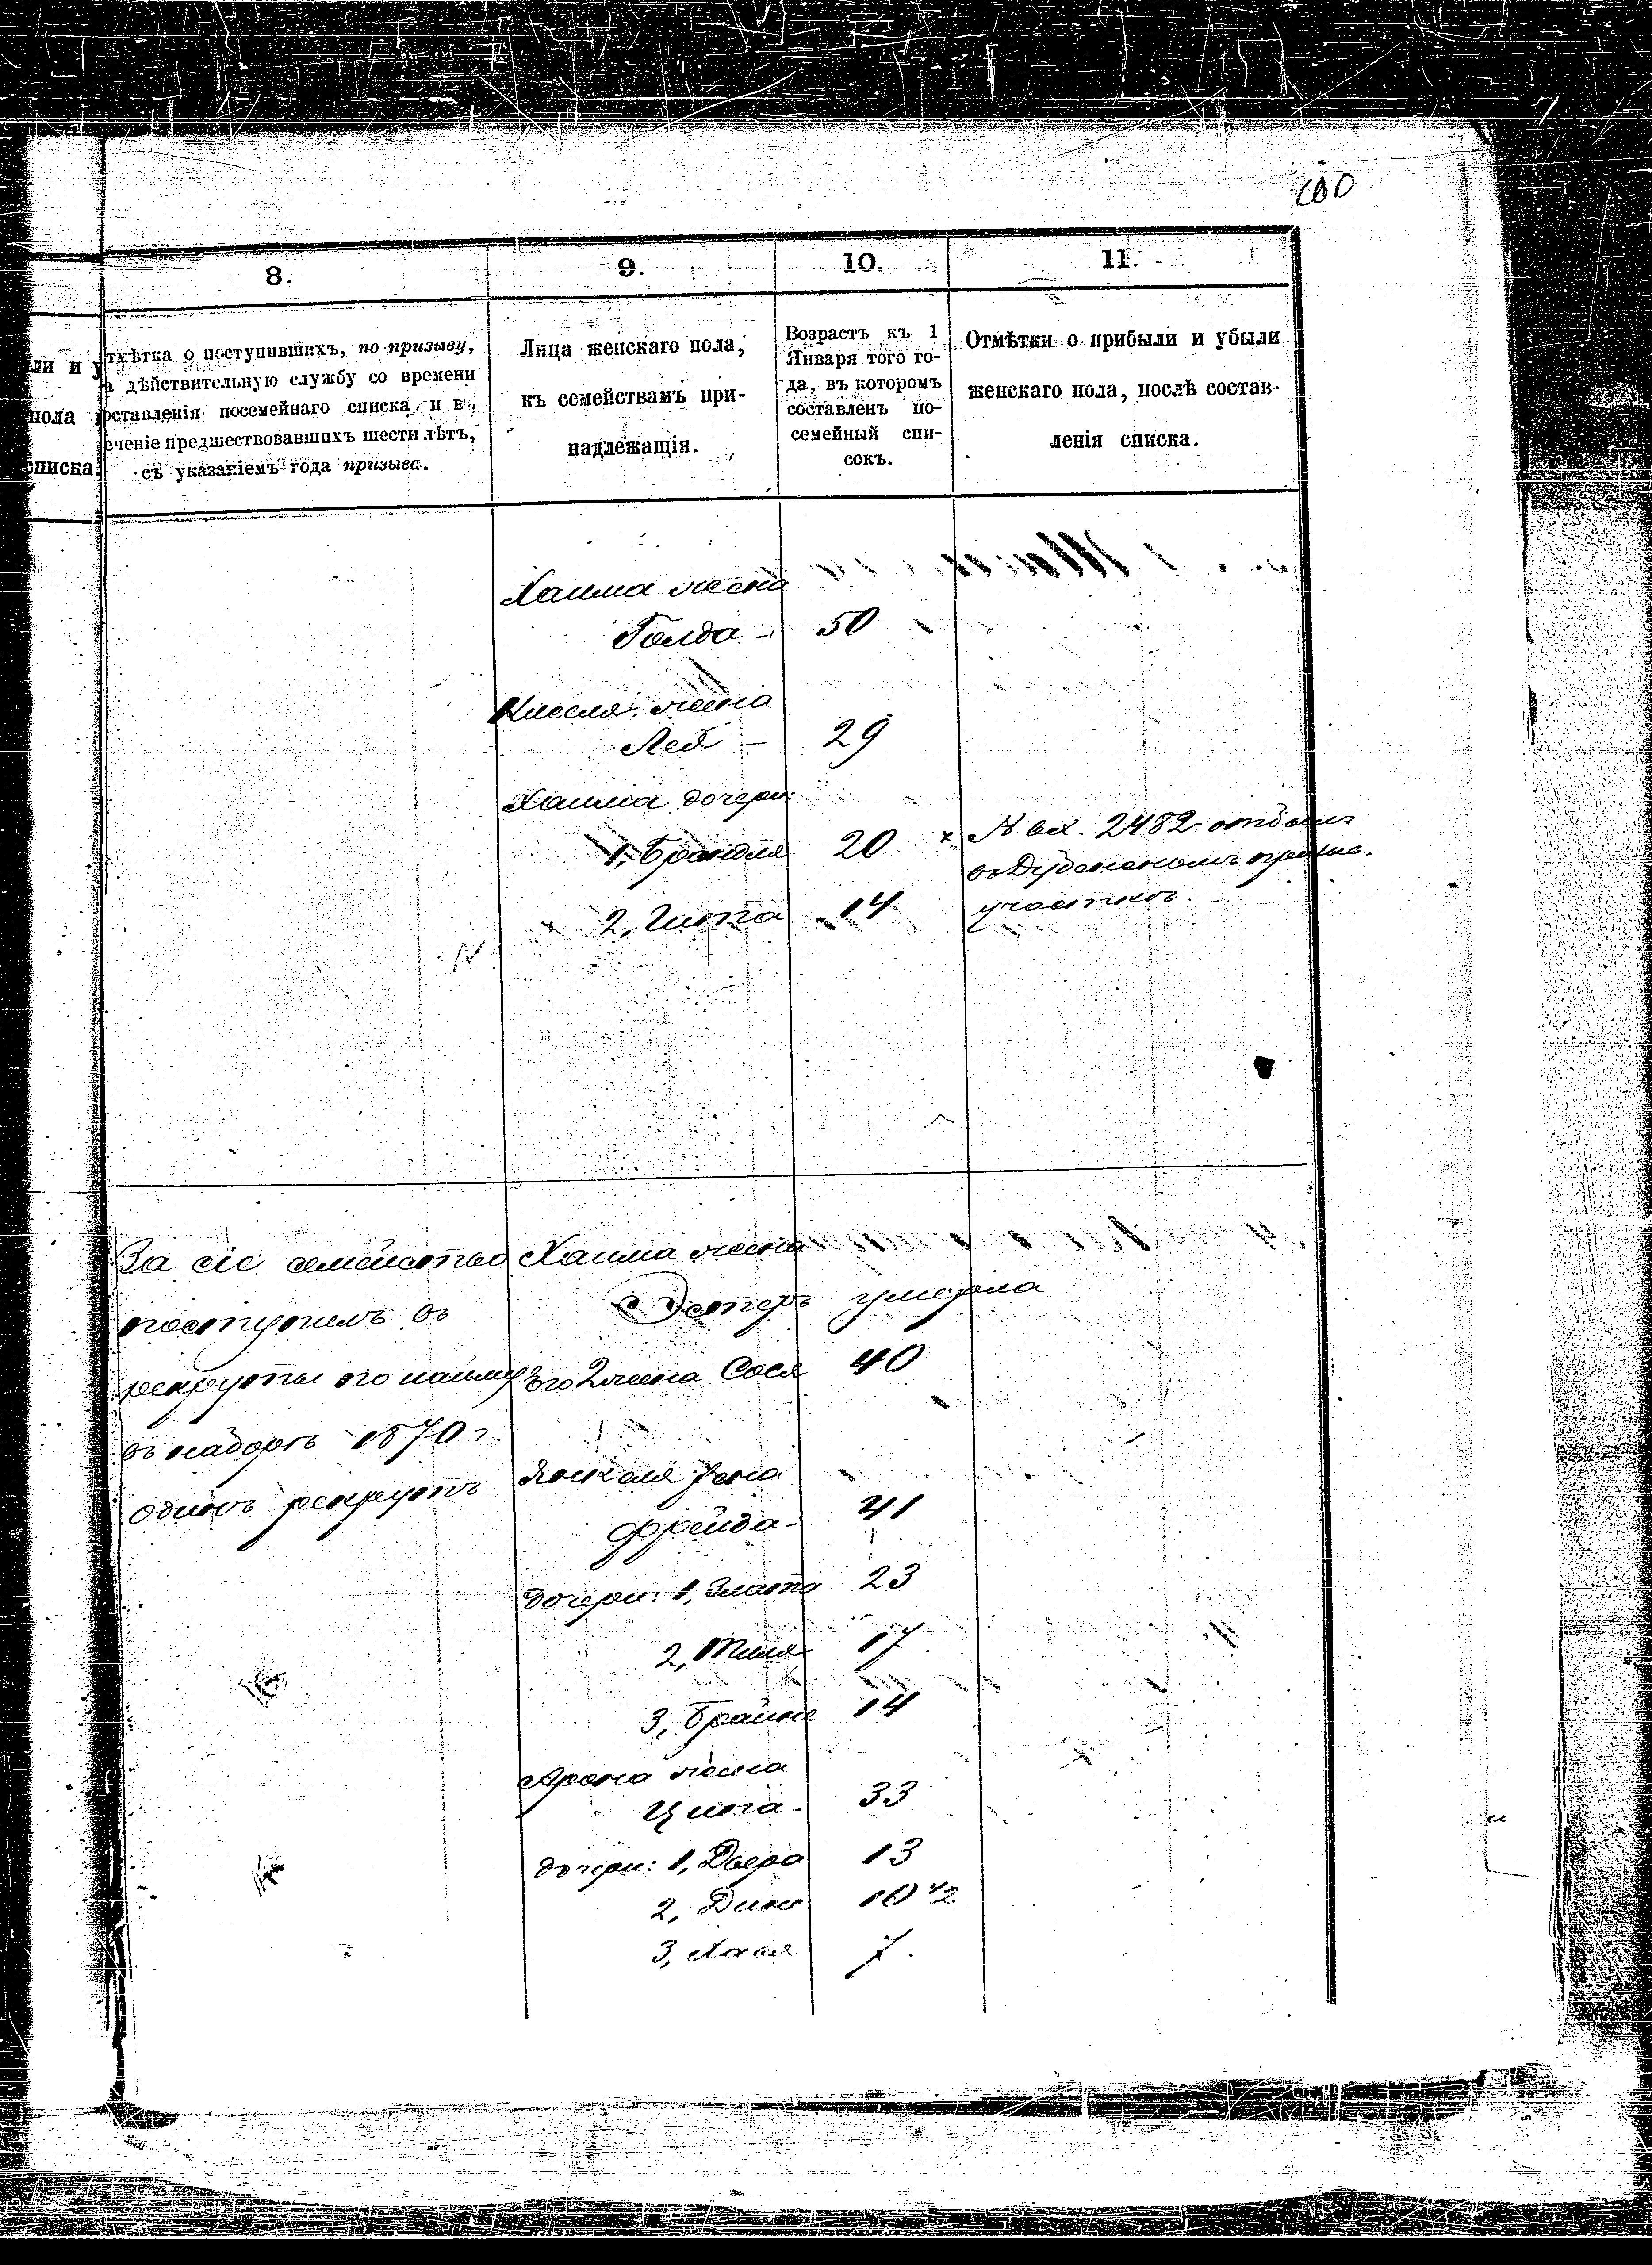 100
8.
9.
10.
11.
ли и у
пола
списка.
тмѣтка о поступившихъ, по призыву,
а дѣйствительную службу со времени
оставленія посемейнаго списка и в
еченіе предшествовавшихъ шести лѣтъ,
съ указаніемъ года призыва.
Лица женскаго пола,
къ семействамъ при-
надлежащія.
Возрастъ къ 1
Января того го-
да, въ которомъ
составленъ по-
семейный спи-
сокъ.
Отмѣтки о прибыли и убыли
женскаго пола, послѣ состав-
ленія списка.
Хаима жена
Голда - 50
Кисля жена
Лея - 29
Хаима дочери:
1, Брандля 20 x № вх. 2482 отбыл
въ Дубенскомъ призыв.
2, Гитта 14 участковъ
За сіе семейство Хаима жена
поступилъ въ Эстеръ умерла
рекруты по найму его 2 жена Сося 40
въ наборъ 1870 г.
одинъ рекрутъ
Янкеля жена
Фрейда - 41
дочери: 1, Злата 23
2, Тиля 17
3, Брайна 14
Арона жена
Ципа - 33
дочери: 1, Двера 13
2, Дина 10 1/2
3, Хася 7.